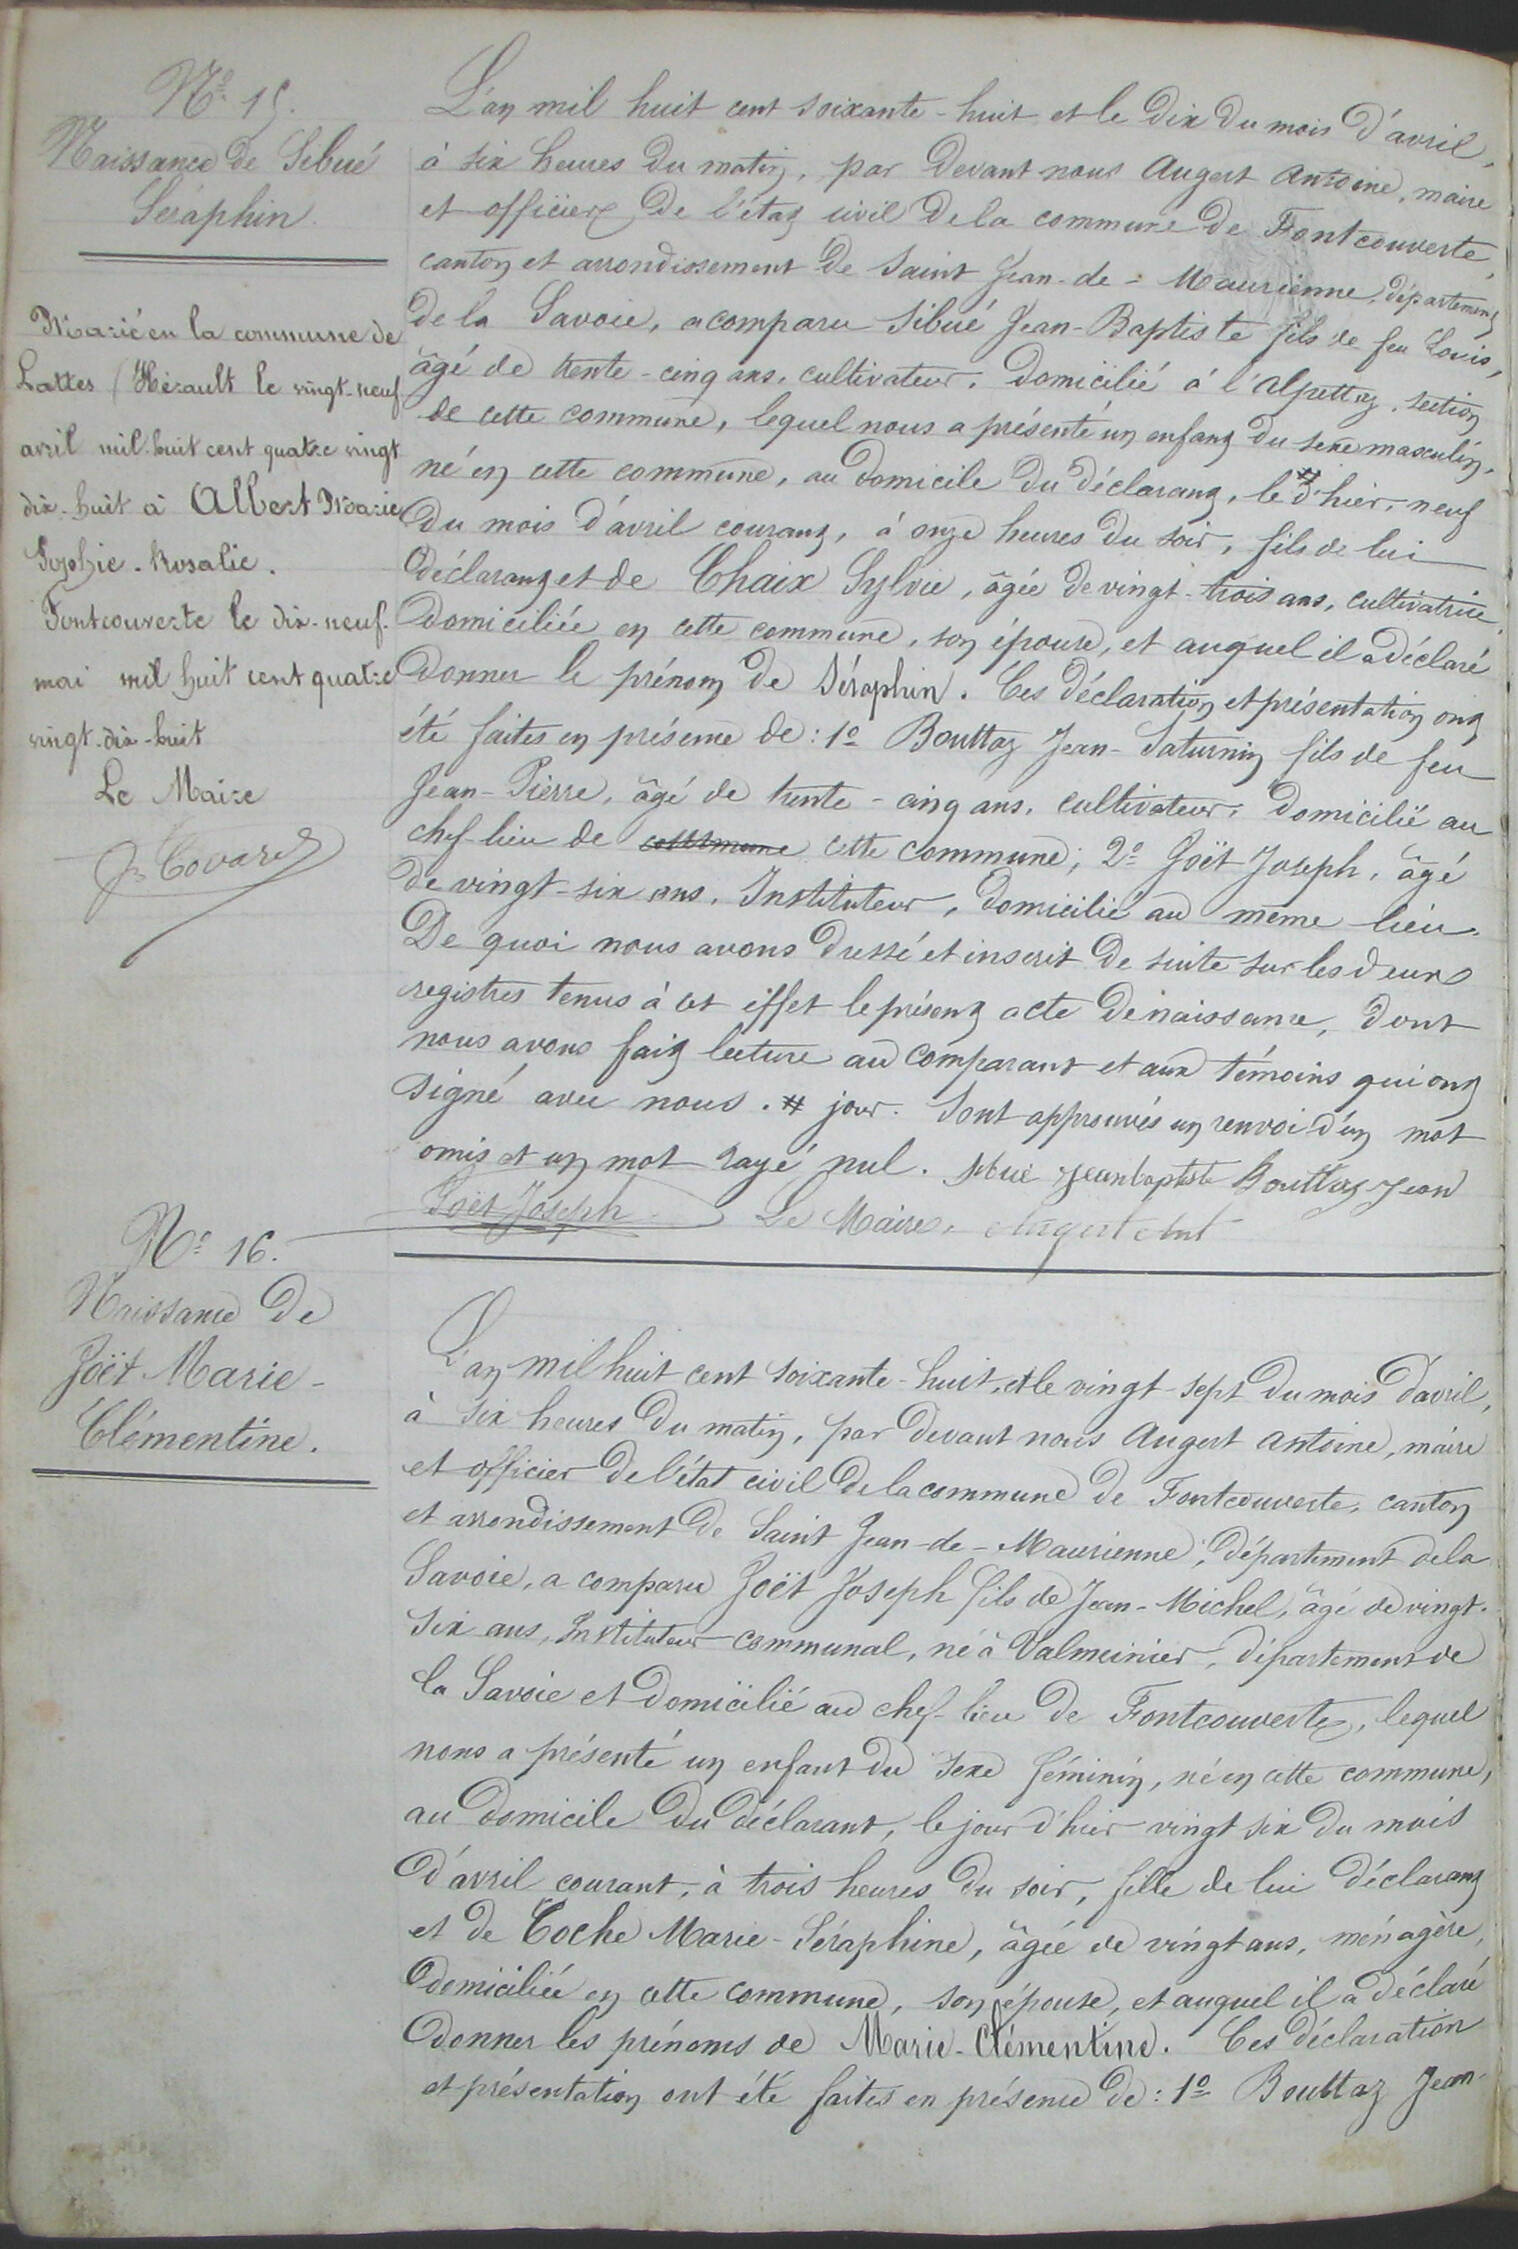 N° 15.
Naissance de Sibué
Séraphin.
Marié en la commune de
Lattes (Hérault le vingt-neuf
avril mil-huit cent quatre vingt
dix-huit à Albert Marie
Sophie-Rosalie.
Fontcouverte le dix-neuf
mai mil huit cent quatre
vingt-dix-huit
Le Maire
L'an mil huit cent soixante-huit et le dix du mois d'avril,
à six heures du matin, par devant nous Augert Antoine, maire
et officier de l'état civil de la commune de Fontcouverte,
canton et arrondissement de Saint Jean-de-Maurienne, département
de la Savoie, a comparu Sibué Jean-Baptiste fils de feu Louis,
âgé de trente-cinq ans, cultivateur, domicilié à l'Alpettaz, section
de cette commune, lequel nous a présenté un enfant du sexe masculin,
né en cette commune, au domicile du déclarant, le # d'hier, neuf
du mois d'avril courant, à onze heures du soir, fils de lui
déclarant et de Chaix Sylvie, âgée de vingt-trois ans, cultivatrice,
domiciliée en cette commune, son épouse, et auquel il a déclaré
donner le prénom de Séraphin. Ces déclaration et présentation ont
été faites en présence de : 1° Bouttaz Jean-Saturnin fils de feu
Jean-Pierre, âgé de trente-cinq ans, cultivateur, domicilié au
chef-lieu de commune cette commune; 2° Joët Joseph, âgé
de vingt-six ans, Instituteur, domicilié au même lieu.
De quoi nous avons dressé et inscrit de suite sur les deux
registres tenus à cet effet le présent acte de naissance, dont
nous avons fait lecture au comparant et aux témoins qui ont
signé avec nous. # jour. Sont approuvés un renvoi d'un mot
omis et un mot rayé nul. Sibué jeanbaptiste Bouttaz Jean
Joët Joseph Le Maire, Augert Ant
N° 16.
Naissance de
Joët Marie-
Clémentine.
L'an mil huit cent soixante-huit, et le vingt-sept du mois d'avril,
à six heures du matin, par devant nous Augert Antoine, maire
et officier de l'état civil de la commune de Fontcouverte, canton
et arrondissement de Saint Jean-de-Maurienne, département de la
Savoie, a comparu Joët Joseph fils de Jean-Michel, âgé de vingt-
six ans, Instituteur communal, né à Valmeinier, département de
la Savoie et domicilié au chef-lieu de Fontcouverte, lequel
nous a présenté un enfant du sexe féminin, né en cette commune,
au domicile du déclarant, le jour d'hier vingt six du mois
d'avril courant, à trois heures du soir, fille de lui déclarant
et de Coche Marie-Séraphine, âgée de vingt ans, ménagère,
domiciliée en cette commune, son épouse, et auquel il a déclaré
donner les prénoms de Marie-Clémentine. Ces déclaration
et présentation ont été faites en présence de : 1° Bouttaz Jean-